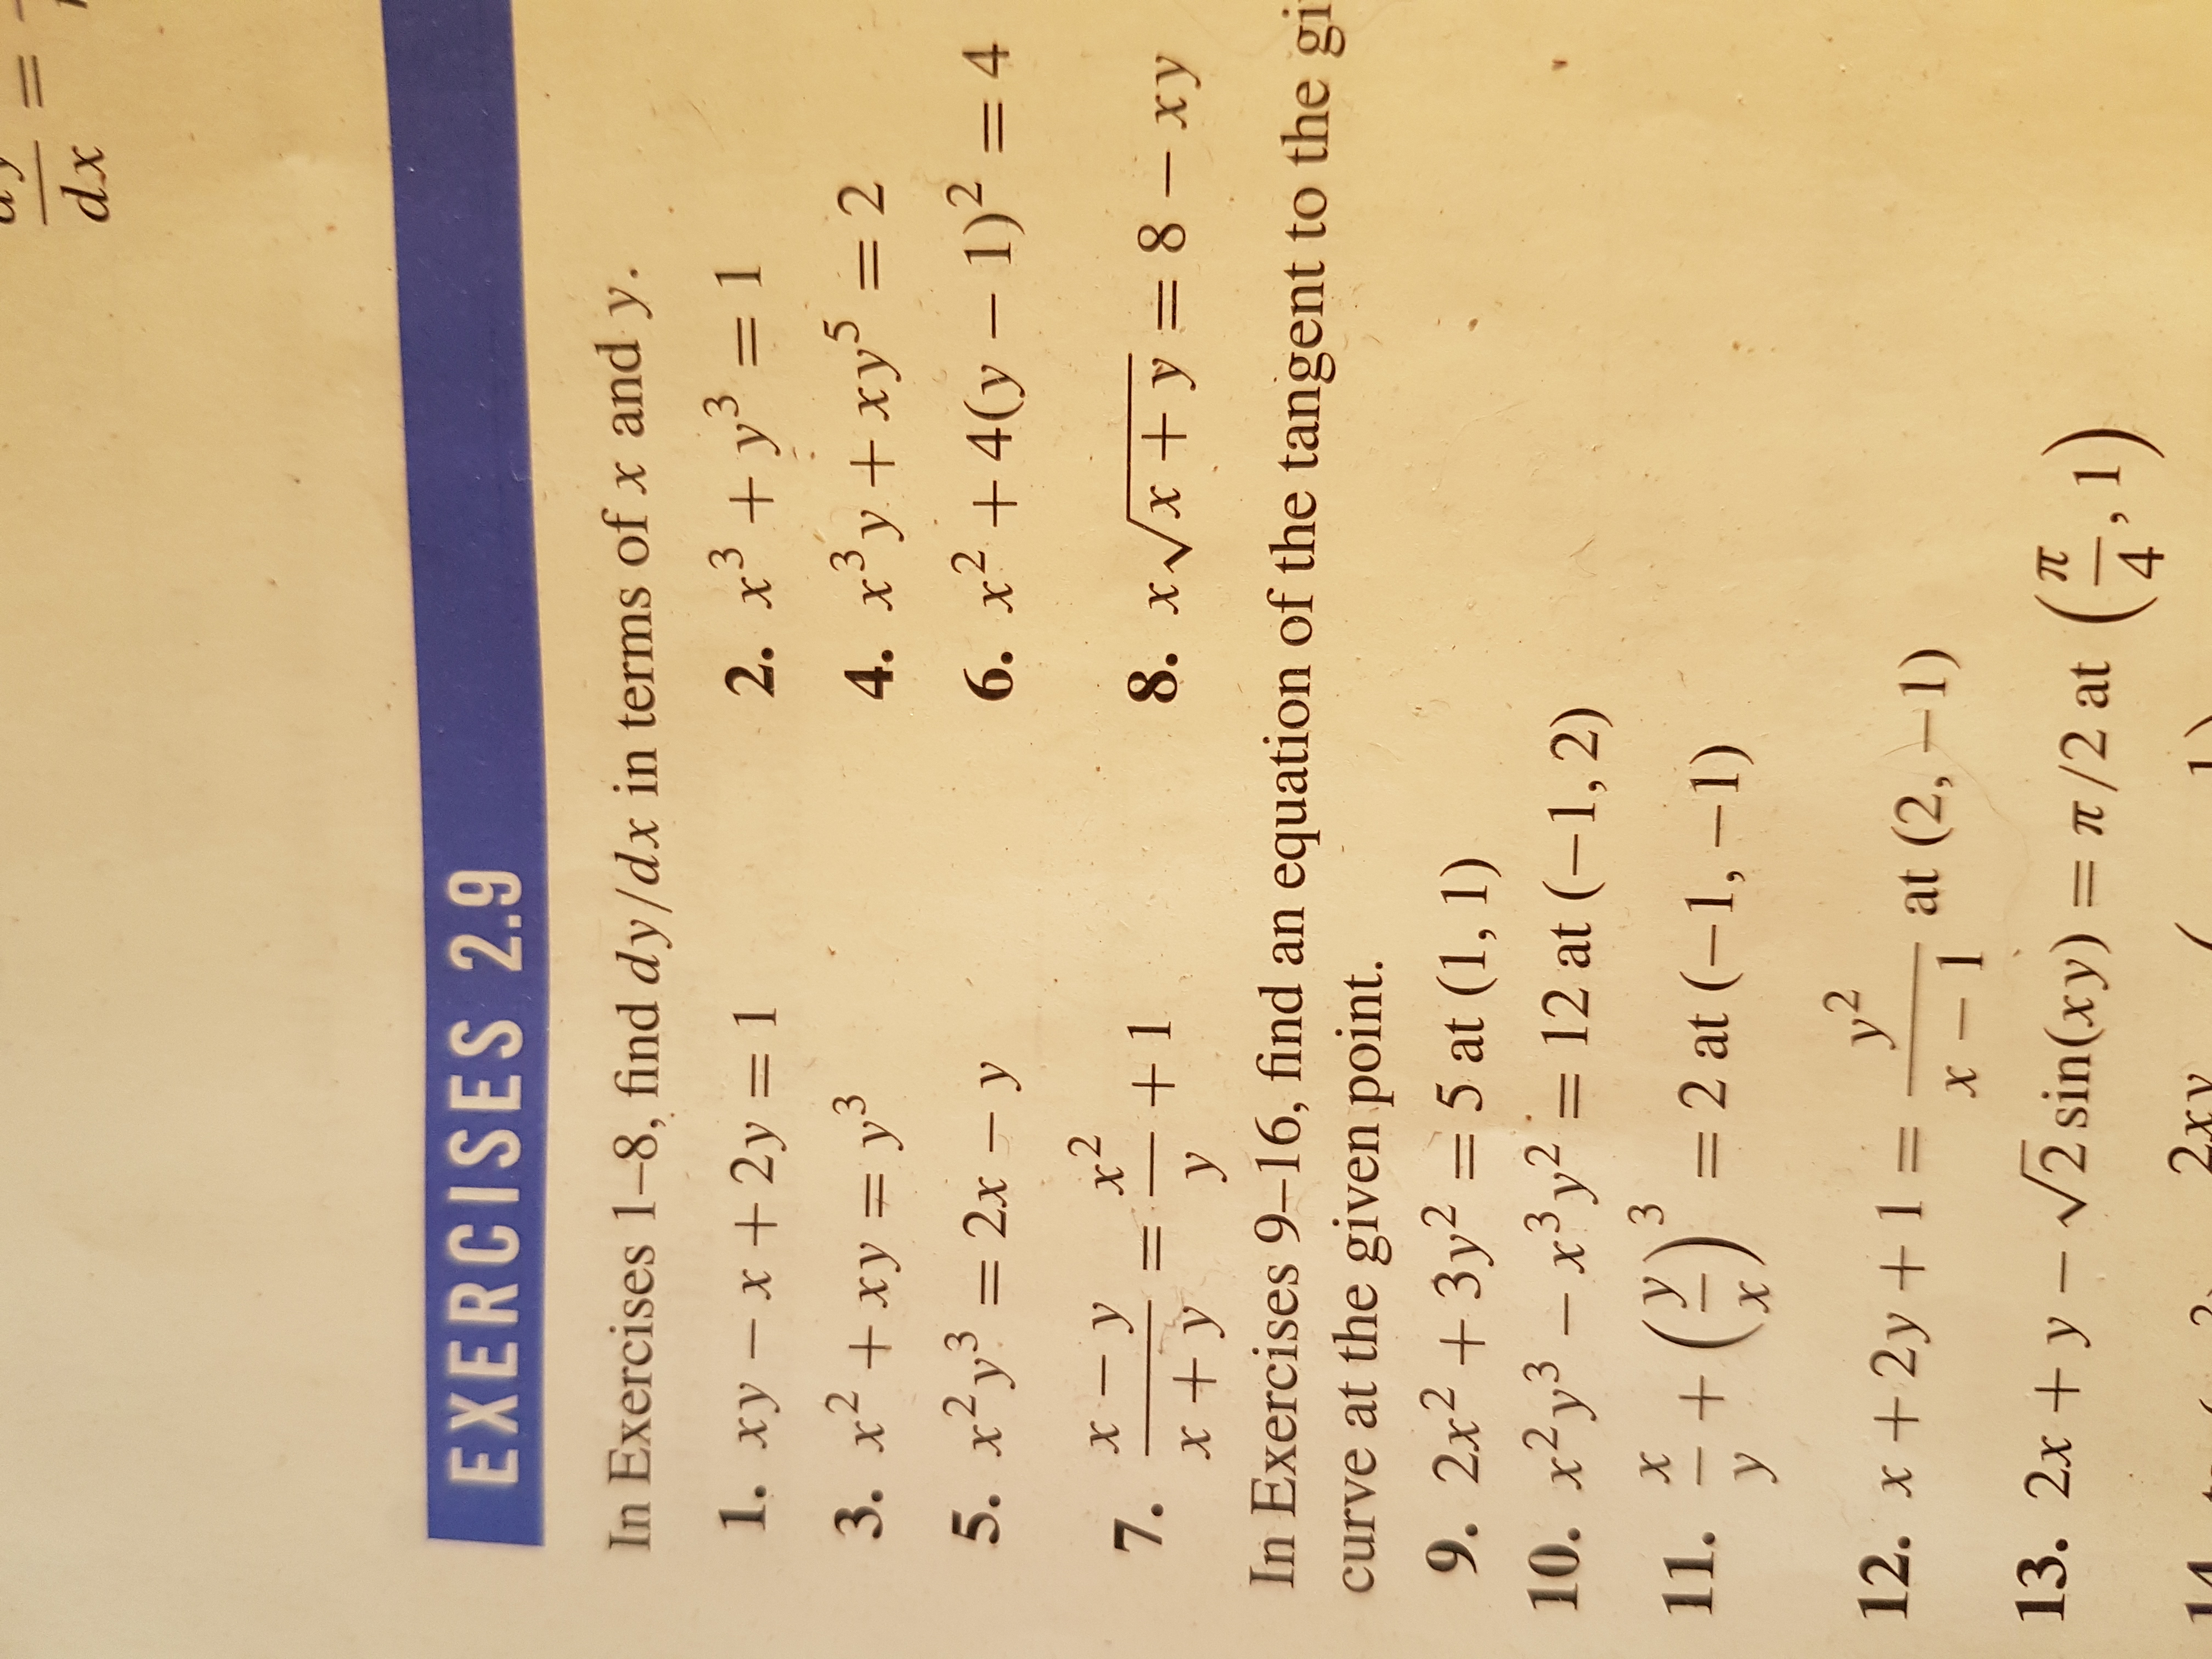 dy/dx =
EXERCISES 2.9
In Exercises 1–8, find dy/dx in terms of x and y.
1. xy − x + 2y = 1
2. x³ + y³ = 1
3. x² + xy = y³
4. x³y + xy⁵ = 2
5. x²y³ = 2x − y
6. x² + 4(y − 1)² = 4
7. (x − y)/(x + y) = x²/y + 1
8. x√(x + y) = 8 − xy
In Exercises 9–16, find an equation of the tangent to the
curve at the given point.
9. 2x² + 3y² = 5 at (1, 1)
10. x²y³ − x³y² = 12 at (−1, 2)
11. x/y + (y/x)³ = 2 at (−1, −1)
12. x + 2y + 1 = y²/(x − 1) at (2, −1)
13. 2x + y − √2 sin(xy) = π/2 at (π/4, 1)
14. 2xy